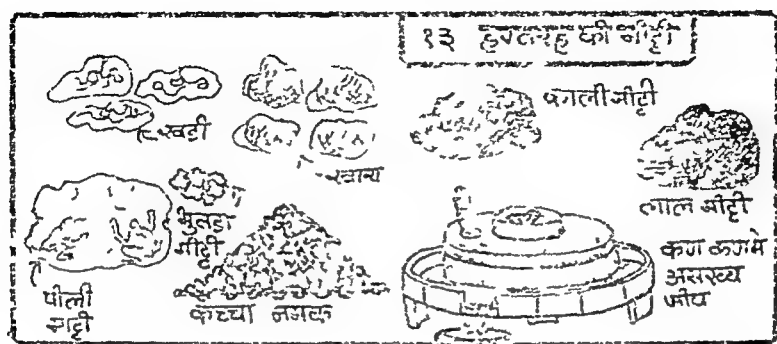 १३ हरतरह की मीट्टी
खडी
काली मीट्टी
लाल मीट्टी
मीट्टी
पीली
मीट्टी
कच्चा नमक
कण कणमे
असंख्य
जीव